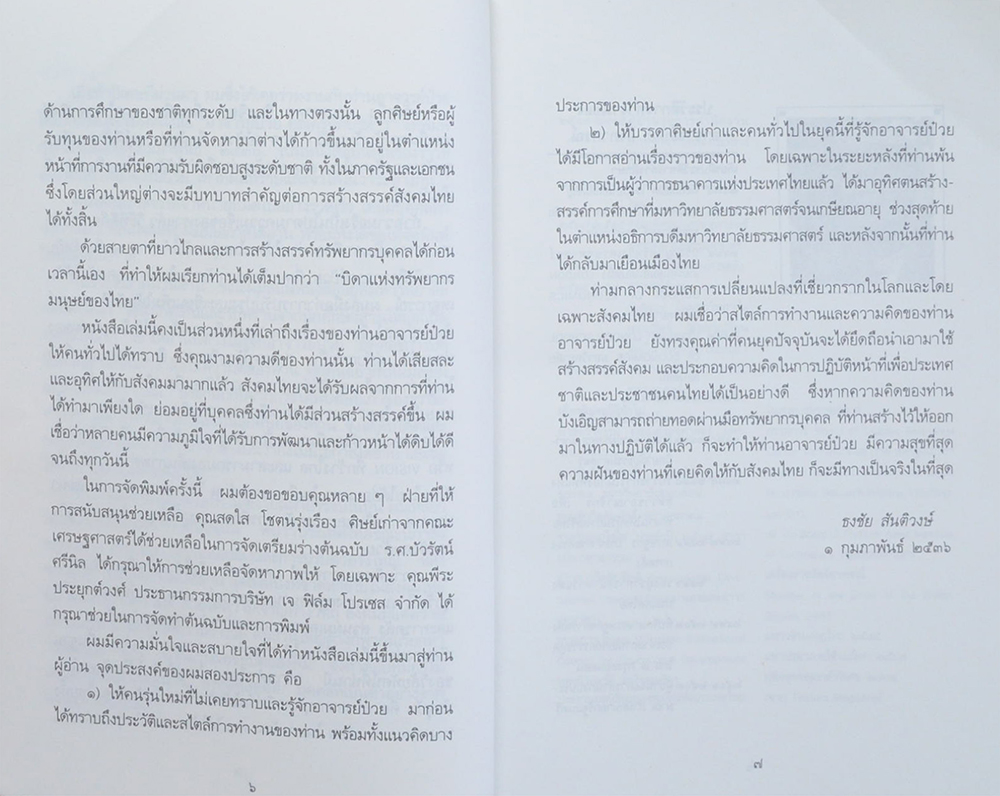 ด้านการศึกษาของชาติทุกระดับ และในทางตรงนั้น ลูกศิษย์หรือผู้
รับทุนของท่านหรือที่ท่านจัดหามาต่างได้ก้าวขึ้นมาอยู่ในตำแหน่ง
หน้าที่การงานที่มีความรับผิดชอบสูงระดับชาติ ทั้งในภาครัฐและเอกชน
ซึ่งโดยส่วนใหญ่ต่างจะมีบทบาทสำคัญต่อการสร้างสรรค์สังคมไทย
ได้ทั้งสิ้น
ด้วยสายตาที่ยาวไกลและการสร้างสรรค์ทรัพยากรบุคคลได้ก่อน
เวลานี้เอง ที่ทำให้ผมเรียกท่านได้เต็มปากว่า “บิดาแห่งทรัพยากร
มนุษย์ของไทย”
หนังสือเล่มนี้คงเป็นส่วนหนึ่งที่เล่าถึงเรื่องของท่านอาจารย์ป๋วย
ให้คนทั่วไปได้ทราบ ซึ่งคุณงามความดีของท่านนั้น ท่านได้เสียสละ
และอุทิศให้กับสังคมมามากแล้ว สังคมไทยจะได้รับผลจากการที่ท่าน
ได้ทำมาเพียงใด ย่อมอยู่ที่บุคคลซึ่งท่านได้มีส่วนสร้างสรรค์ขึ้น ผม
เชื่อว่าหลายคนมีความภูมิใจที่ได้รับการพัฒนาและก้าวหน้าได้ดิบได้ดี
จนถึงทุกวันนี้
ในการจัดพิมพ์ครั้งนี้ ผมต้องขอขอบคุณหลาย ๆ ฝ่ายที่ให้
การสนับสนุนช่วยเหลือ คุณสดใส โชตนรุ่งเรือง ศิษย์เก่าจากคณะ
เศรษฐศาสตร์ได้ช่วยเหลือในการจัดเตรียมร่างต้นฉบับ ร.ศ.บัวรัตน์
ศรีนิล ได้กรุณาให้การช่วยเหลือจัดหาภาพให้ โดยเฉพาะ คุณพีระ
ประยุกต์วงศ์ ประธานกรรมการบริษัท เจ ฟิล์ม โปรเซส จำกัด ได้
กรุณาช่วยในการจัดทำต้นฉบับและการพิมพ์
ผมมีความมั่นใจและสบายใจที่ได้ทำหนังสือเล่มนี้ขึ้นมาสู่ท่าน
ผู้อ่าน จุดประสงค์ของผมสองประการ คือ
๑) ให้คนรุ่นใหม่ที่ไม่เคยทราบและรู้จักอาจารย์ป๋วย มาก่อน
ได้ทราบถึงประวัติและสไตล์การทำงานของท่าน พร้อมทั้งแนวคิดบาง
๖
ประการของท่าน
๒) ให้บรรดาศิษย์เก่าและคนทั่วไปในยุคนี้ที่รู้จักอาจารย์ป๋วย
ได้มีโอกาสอ่านเรื่องราวของท่าน โดยเฉพาะในระยะหลังที่ท่านพ้น
จากการเป็นผู้ว่าการธนาคารแห่งประเทศไทยแล้ว ได้มาอุทิศตนสร้าง-
สรรค์การศึกษาที่มหาวิทยาลัยธรรมศาสตร์จนเกษียณอายุ ช่วงสุดท้าย
ในตำแหน่งอธิการบดีมหาวิทยาลัยธรรมศาสตร์ และหลังจากนั้นที่ท่าน
ได้กลับมาเยือนเมืองไทย
ท่ามกลางกระแสการเปลี่ยนแปลงที่เชี่ยวกรากในโลกและโดย
เฉพาะสังคมไทย ผมเชื่อว่าสไตล์การทำงานและความคิดของท่าน
อาจารย์ป๋วย ยังทรงคุณค่าที่คนยุคปัจจุบันจะได้ยึดถือนำเอามาใช้
สร้างสรรค์สังคม และประกอบความคิดในการปฏิบัติหน้าที่เพื่อประเทศ
ชาติและประชาชนคนไทยได้เป็นอย่างดี ซึ่งหากความคิดของท่าน
บังเอิญสามารถถ่ายทอดผ่านมือทรัพยากรบุคคล ที่ท่านสร้างไว้ให้ออก
มาในทางปฏิบัติได้แล้ว ก็จะทำให้ท่านอาจารย์ป๋วย มีความสุขที่สุด
ความฝันของท่านที่เคยคิดให้กับสังคมไทย ก็จะมีทางเป็นจริงในที่สุด
ธงชัย สันติวงษ์
๑ กุมภาพันธ์ ๒๕๓๖
๗